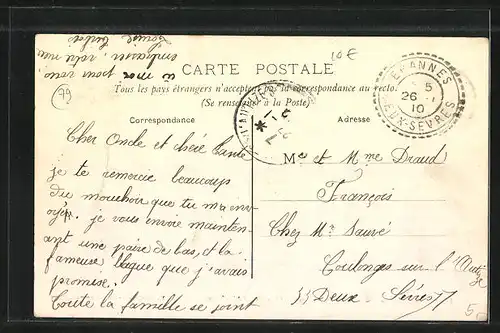 à moi pour vous
embrasser. votre nièce
Louise
10€
99
CARTE POSTALE
Tous les pays étrangers n'acceptent pas la correspondance au recto.
(Se renseigner à la Poste)
Correspondance
Adresse
VANNES
5
26
10
EUX-SÈVRES
Cher Oncle et chère Tante
je te remercie beaucoup
du mouchoir que tu m'a env
oyer. je vous envoie mainten
ant une paire de bas, et la
fameuse blague que j'avais
promise.
Toute la famille se joint
Mr et Mme Draud
François
Chez Mr Sauvé
Coulonges sur l'Autize
Deux-Sèvres